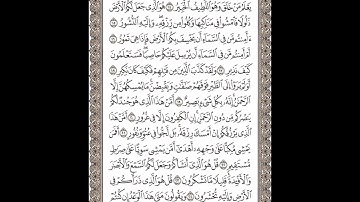 يَعْلَمُ مَنْ خَلَقَ وَهُوَ اللَّطِيفُ الْخَبِيرُ ١٤ هُوَ الَّذِي جَعَلَ لَكُمُ الْأَرْضَ
ذَلُولًا فَامْشُوا فِي مَنَاكِبِهَا وَكُلُوا مِن رِّزْقِهِ وَإِلَيْهِ النُّشُورُ ١٥
ءَأَمِنتُم مَّن فِي السَّمَاءِ أَن يَخْسِفَ بِكُمُ الْأَرْضَ فَإِذَا هِيَ تَمُورُ ١٦
أَمْ أَمِنتُم مَّن فِي السَّمَاءِ أَن يُرْسِلَ عَلَيْكُمْ حَاصِبًا فَسَتَعْلَمُونَ
كَيْفَ نَذِيرِ ١٧ وَلَقَدْ كَذَّبَ الَّذِينَ مِن قَبْلِهِمْ فَكَيْفَ كَانَ نَكِيرِ ١٨
أَوَلَمْ يَرَوْا إِلَى الطَّيْرِ فَوْقَهُمْ صَٰفَّٰتٍ وَيَقْبِضْنَ مَا يُمْسِكُهُنَّ إِلَّا
الرَّحْمَٰنُ إِنَّهُ بِكُلِّ شَيْءٍ بَصِيرٌ ١٩ أَمَّنْ هَٰذَا الَّذِي هُوَ جُندٌ لَّكُمْ
يَنصُرُكُم مِّن دُونِ الرَّحْمَٰنِ إِنِ الْكَٰفِرُونَ إِلَّا فِي غُرُورٍ ٢٠ أَمَّنْ هَٰذَا
الَّذِي يَرْزُقُكُمْ إِنْ أَمْسَكَ رِزْقَهُ بَل لَّجُّوا فِي عُتُوٍّ وَنُفُورٍ ٢١ أَفَمَن
يَمْشِي مُكِبًّا عَلَىٰ وَجْهِهِ أَهْدَىٰ أَمَّن يَمْشِي سَوِيًّا عَلَىٰ صِرَٰطٍ
مُّسْتَقِيمٍ ٢٢ قُلْ هُوَ الَّذِي أَنشَأَكُمْ وَجَعَلَ لَكُمُ السَّمْعَ وَالْأَبْصَٰرَ
وَالْأَفْئِدَةَ قَلِيلًا مَّا تَشْكُرُونَ ٢٣ قُلْ هُوَ الَّذِي ذَرَأَكُمْ فِي
الْأَرْضِ وَإِلَيْهِ تُحْشَرُونَ ٢٤ وَيَقُولُونَ مَتَىٰ هَٰذَا الْوَعْدُ إِن كُنتُمْ